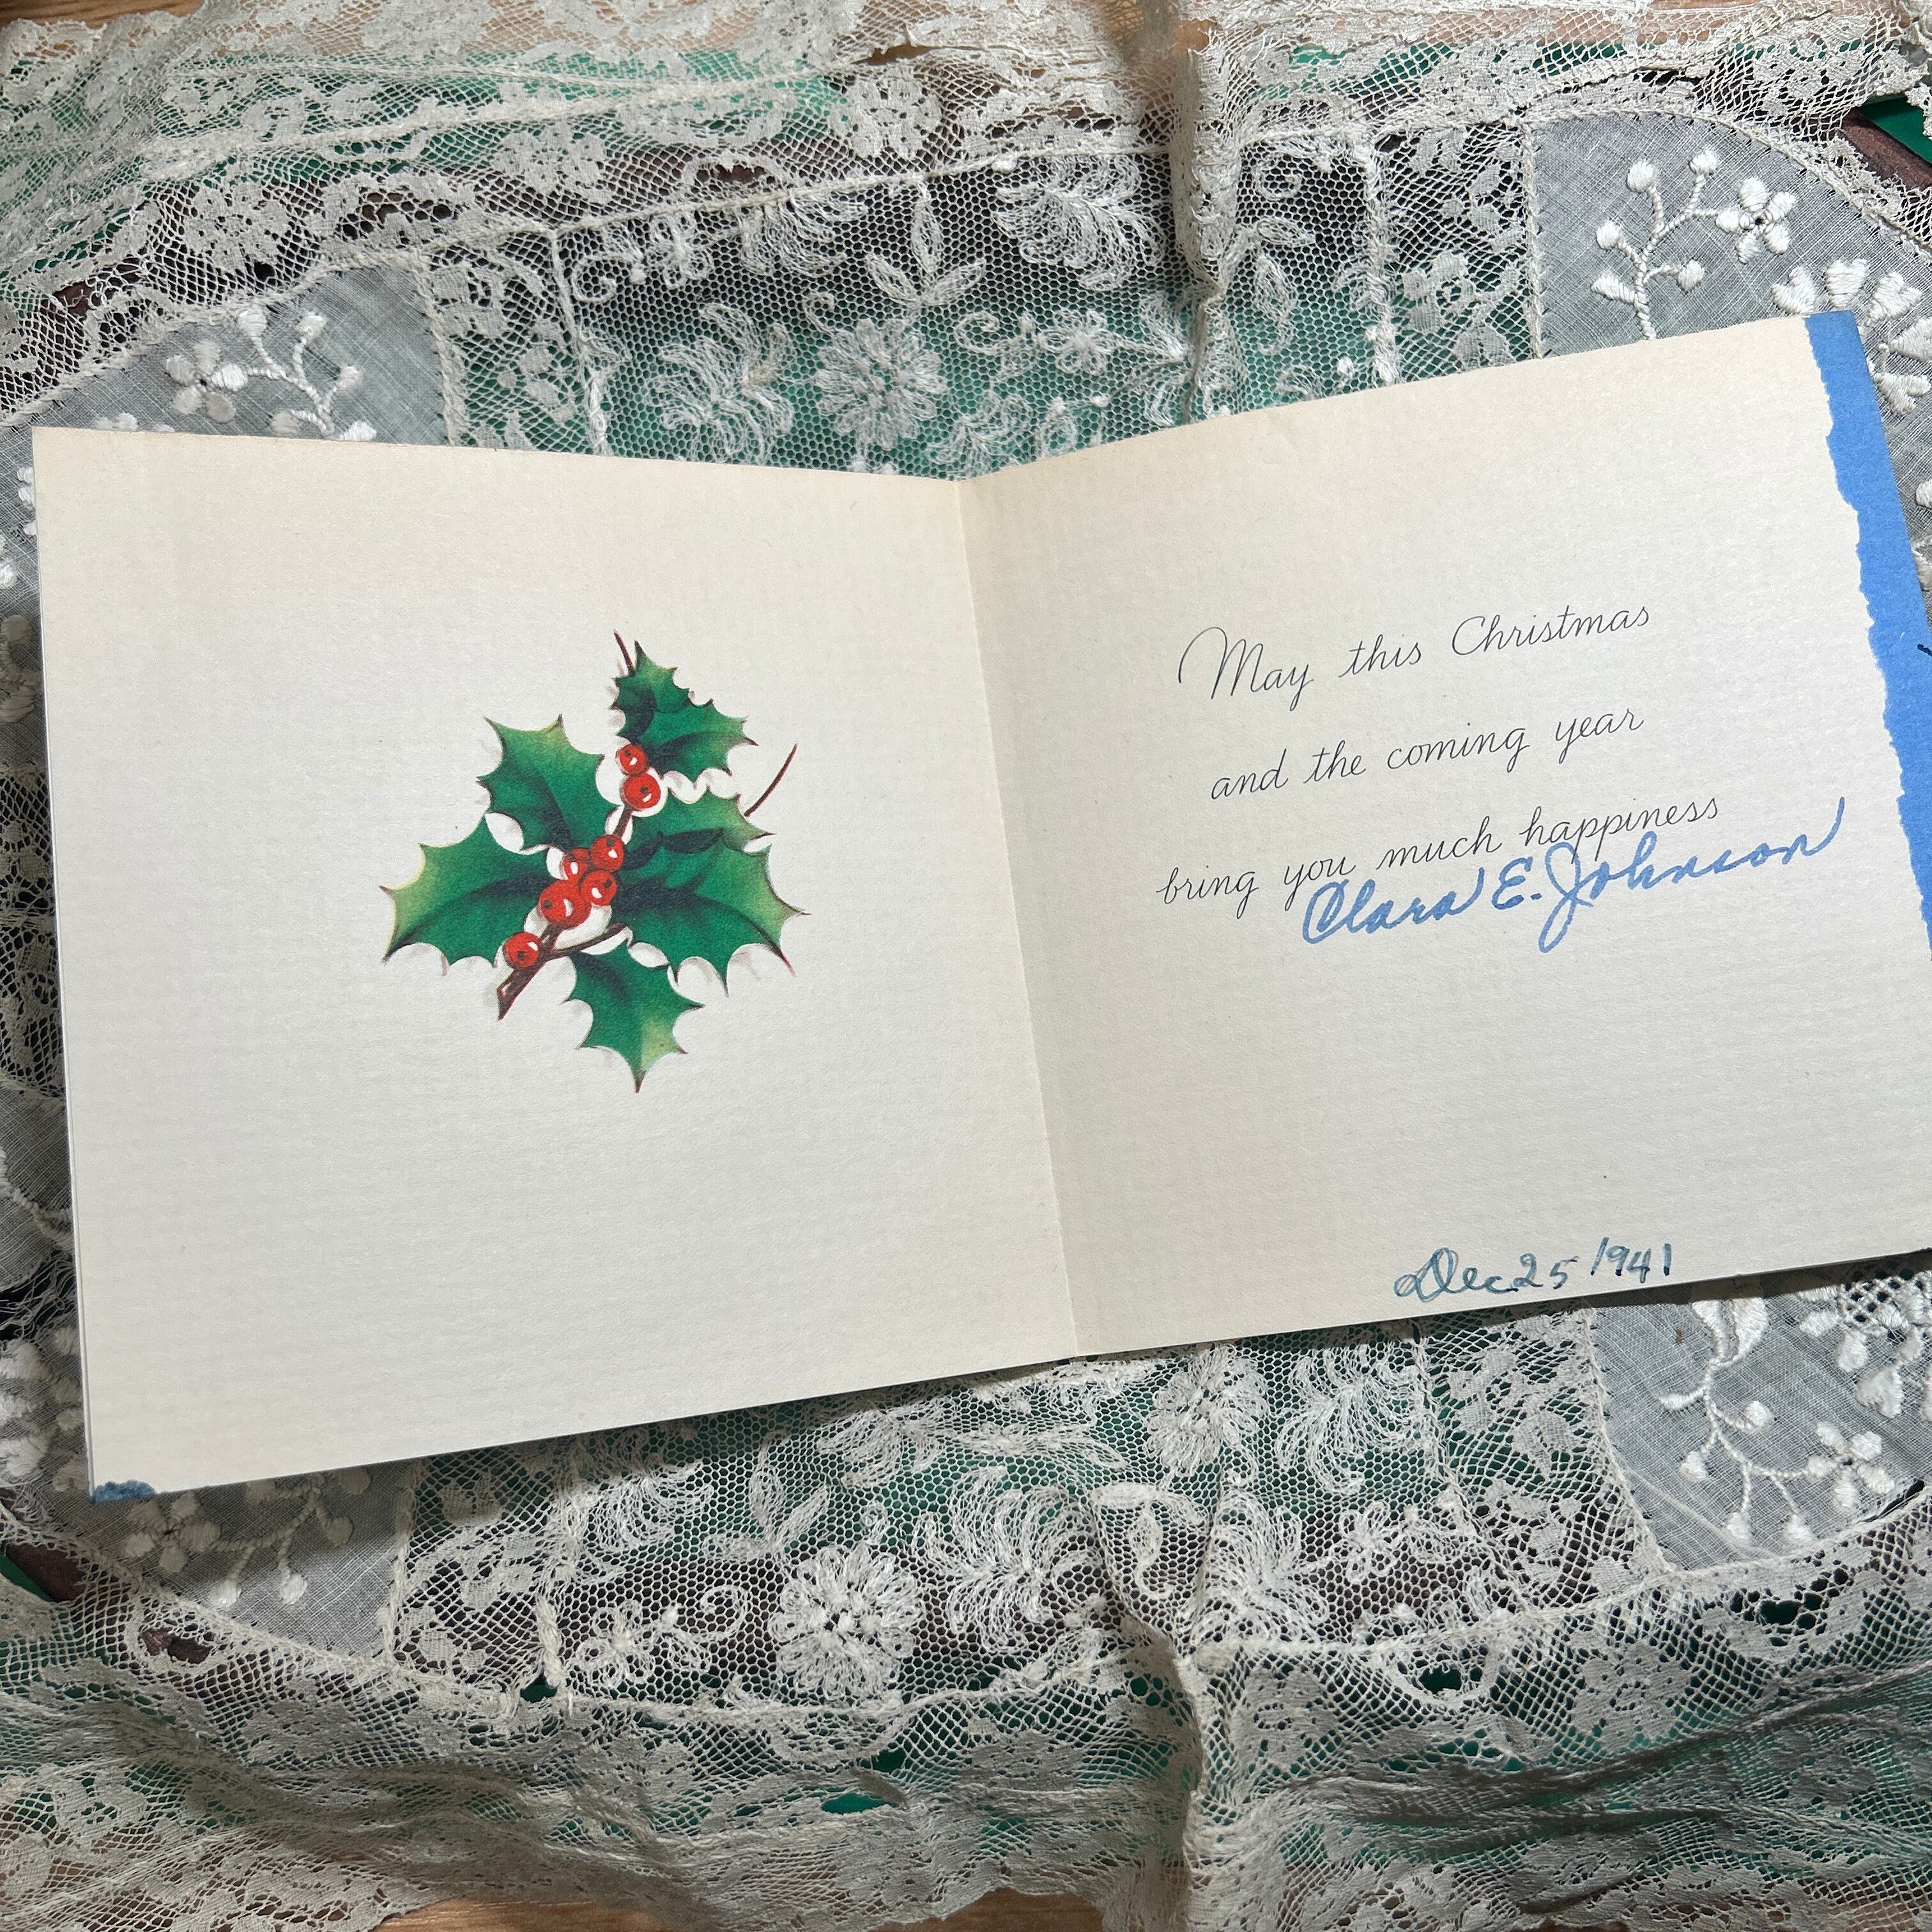 May this Christmas
and the coming year
bring you much happiness
Clara E. Johnson
Dec 25 1941